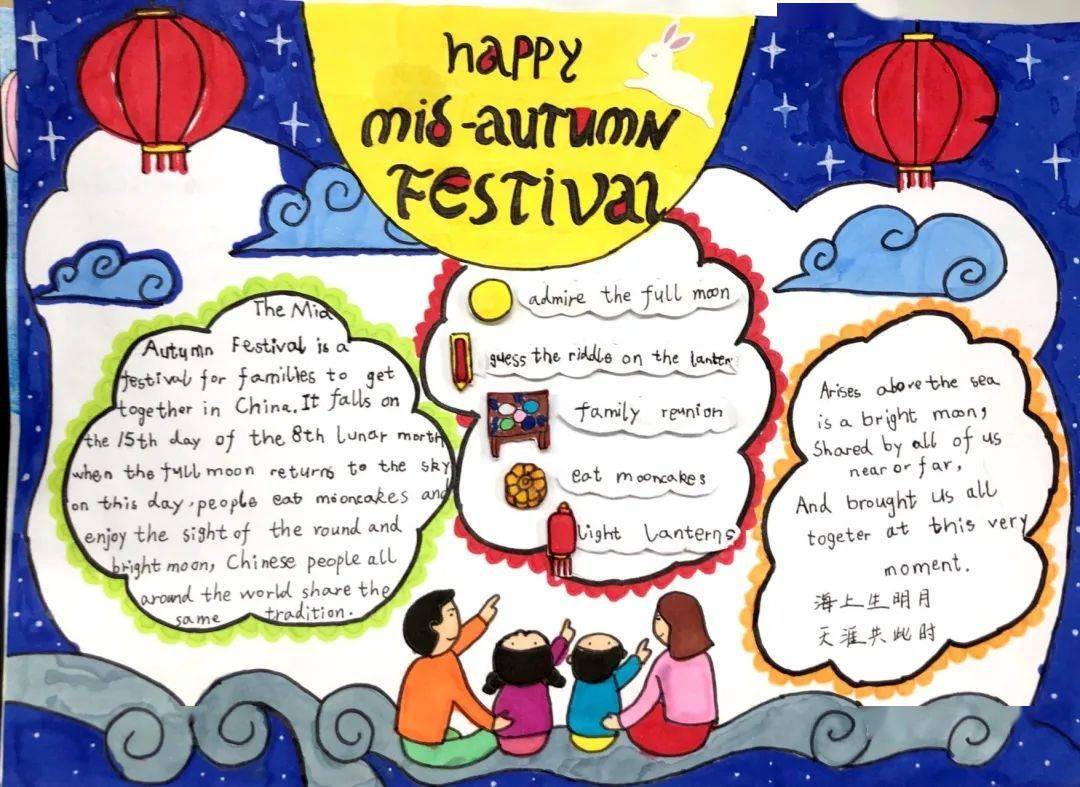 happy
mid-autumn
Festival
The Mid
Autumn Festival is a
festival for families to get
together in China. It falls on
the 15th day of the 8th lunar month
when the full moon returns to the sky
on this day, people eat mooncakes and
enjoy the sight of the round and
bright moon, Chinese people all
around the world share the
same tradition.
admire the full moon
guess the riddle on the lantern
family reunion
eat mooncakes
light lanterns
Arises above the sea
is a bright moon,
Shared by all of us
near or far,
And brought us all
togeter at this very
moment.
海上生明月
天涯共此时